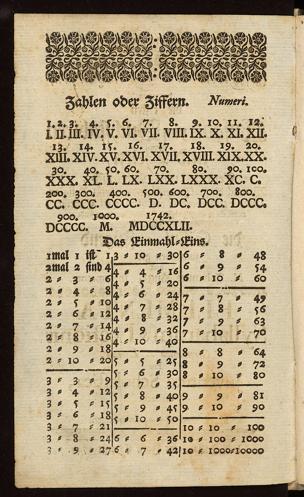 Zahlen oder Ziffern. Numeri.
1. 2. 3. 4. 5. 6. 7. 8. 9. 10. 11. 12.
I. II. III. IV. V. VI. VII. VIII. IX. X. XI. XII.
13. 14. 15. 16. 17. 18. 19. 20.
XIII. XIV. XV. XVI. XVII. XVIII. XIX. XX.
30. 40. 50. 60. 70. 80. 90. 100.
XXX. XL. L. LX. LXX. LXXX. XC. C.
200. 300. 400. 500. 600. 700. 800.
CC. CCC. CCCC. D. DC. DCC. DCCC.
900. 1000. 1742.
DCCCC. M. MDCCXLII.
Das Einmahl-Eins.
1 mal 1 ist 1
2 mal 2 sind 4
2 = 3 = 6
2 = 4 = 8
2 = 5 = 10
2 = 6 = 12
2 = 7 = 14
2 = 8 = 16
2 = 9 = 18
2 = 10 = 20
3 = 3 = 9
3 = 4 = 12
3 = 5 = 15
3 = 6 = 18
3 = 7 = 21
3 = 8 = 24
3 = 9 = 27
3 = 10 = 30
4 = 4 = 16
4 = 5 = 20
4 = 6 = 24
4 = 7 = 28
4 = 8 = 32
4 = 9 = 36
4 = 10 = 40
5 = 5 = 25
5 = 6 = 30
5 = 7 = 35
5 = 8 = 40
5 = 9 = 45
5 = 10 = 50
6 = 6 = 36
6 = 7 = 42
6 = 8 = 48
6 = 9 = 54
6 = 10 = 60
7 = 7 = 49
7 = 8 = 56
7 = 9 = 63
7 = 10 = 70
8 = 8 = 64
8 = 9 = 72
8 = 10 = 80
9 = 9 = 81
9 = 10 = 90
10 = 10 = 100
10 = 100 = 1000
10 = 1000 = 10000